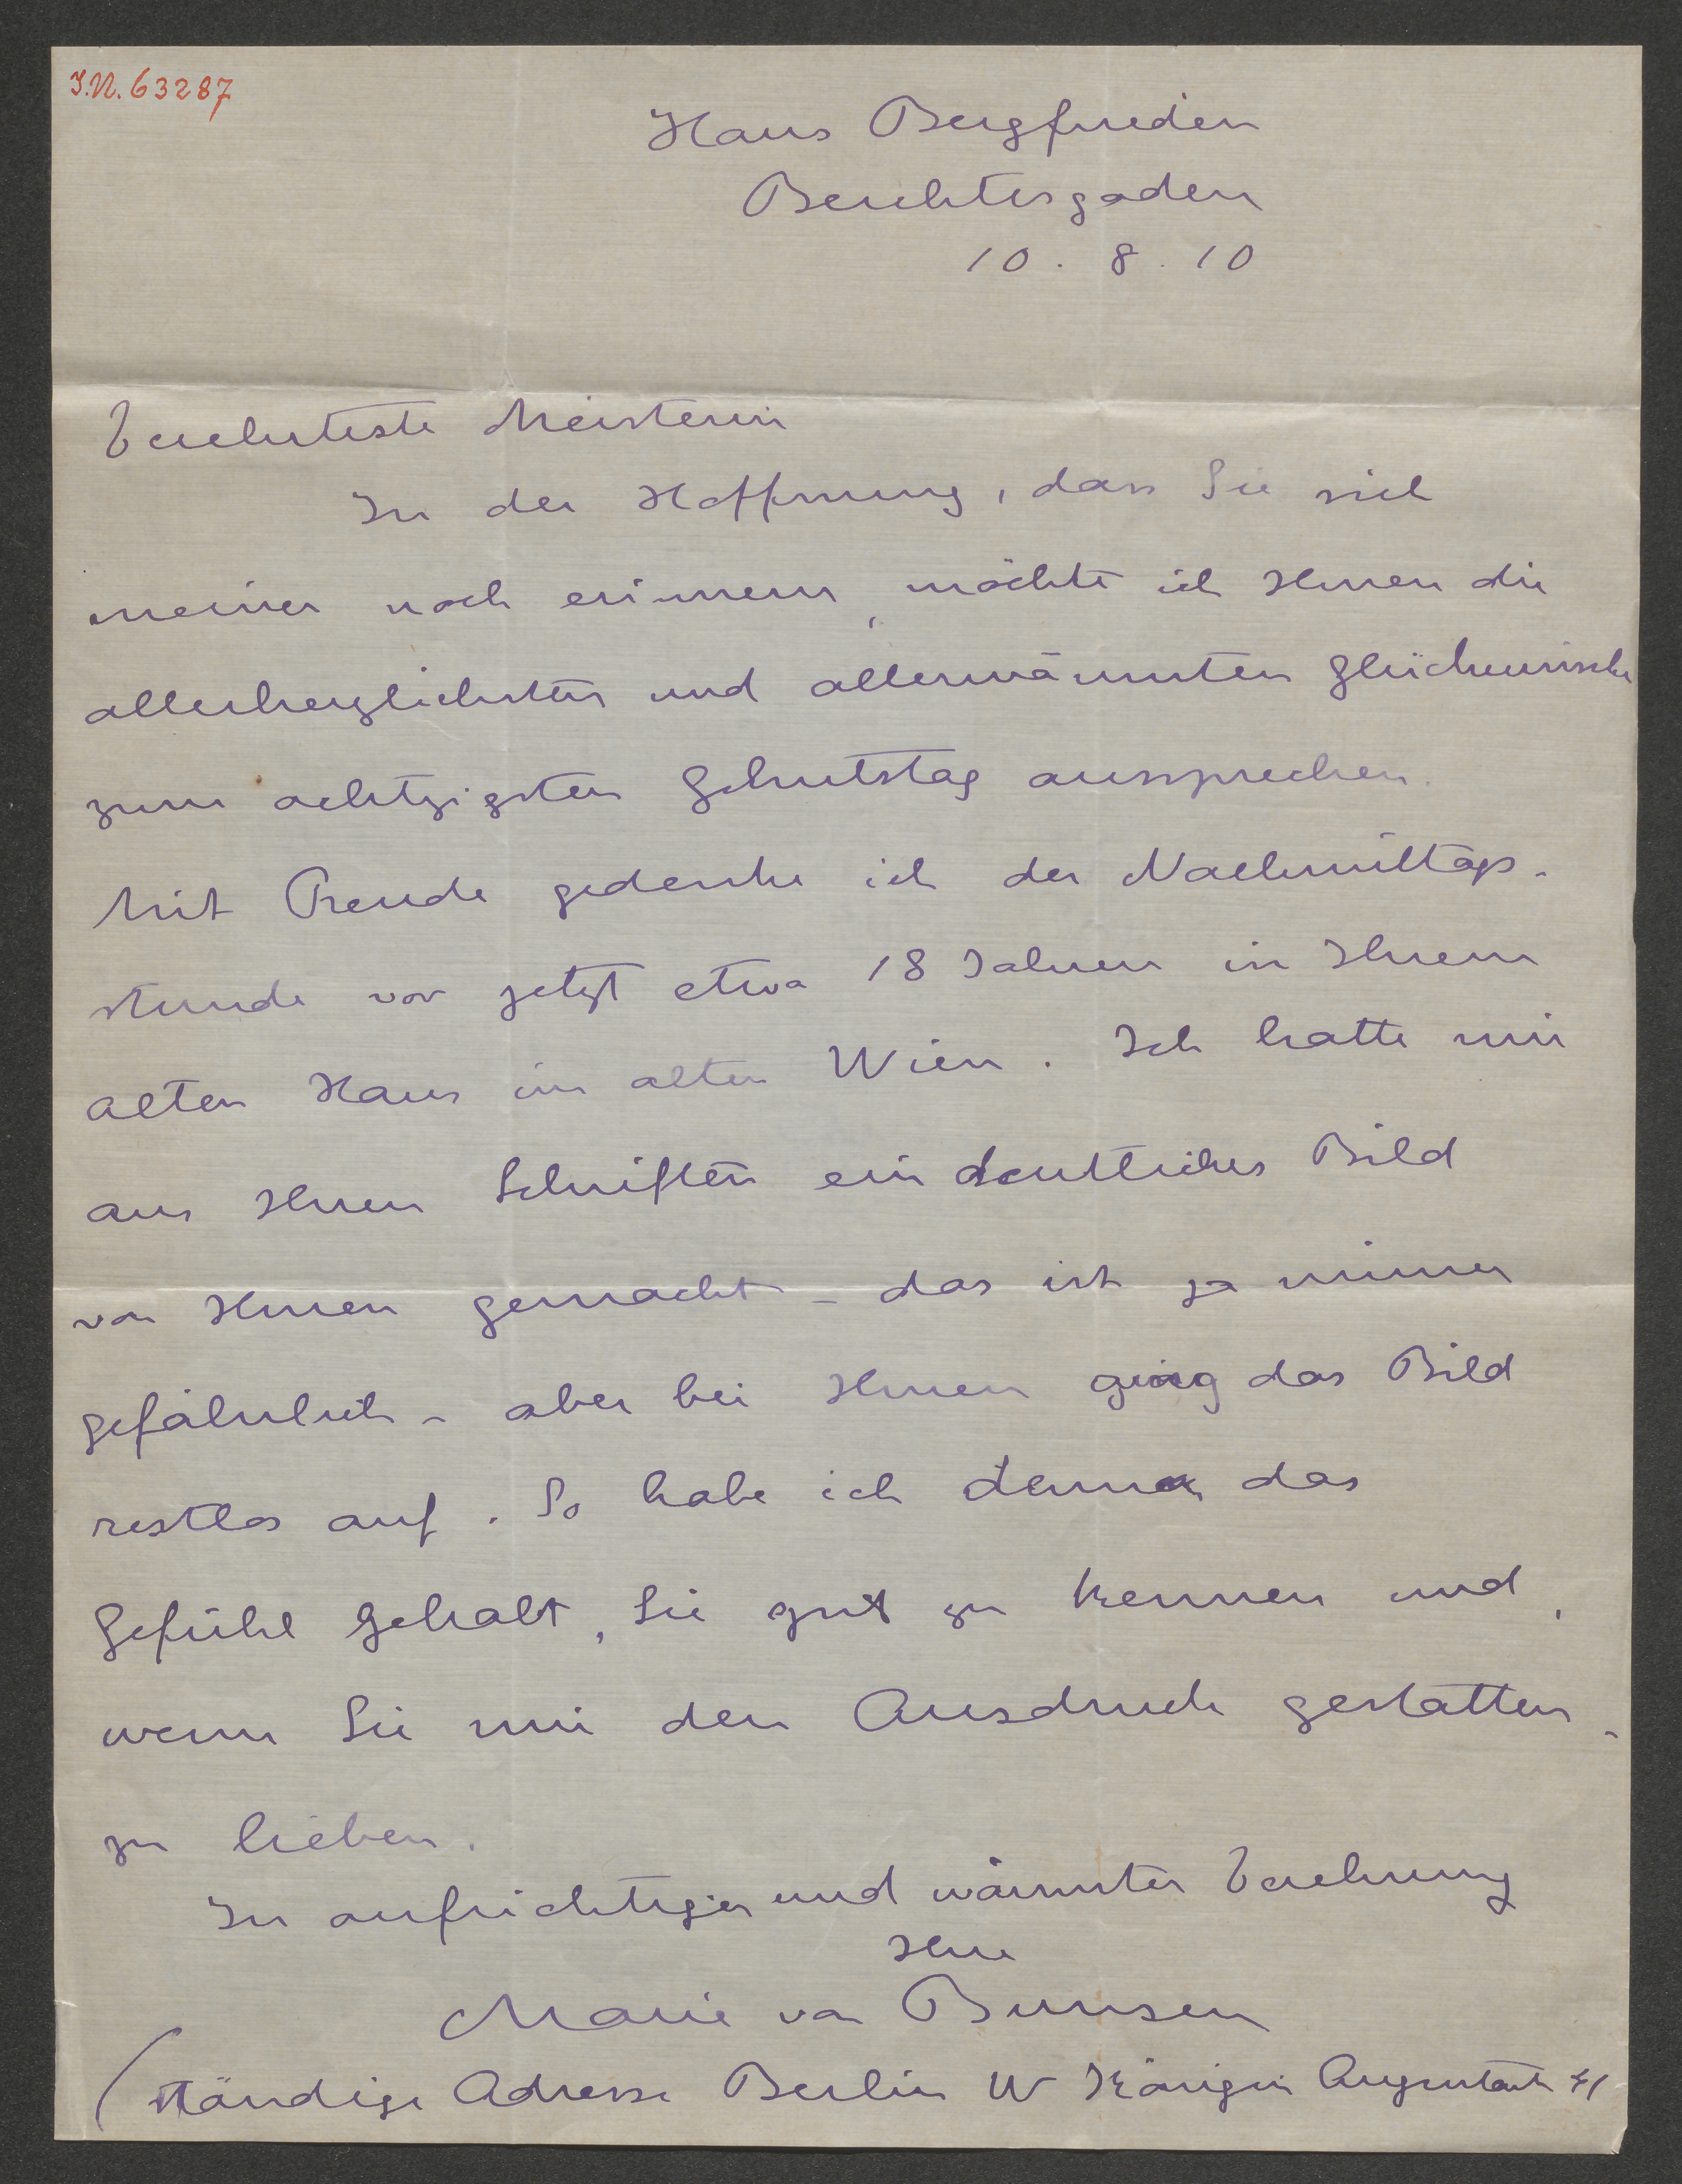 I.N. 63287
Haus Bergfrieden
Berchtesgaden
10. 8. 10
Verehrteste Meisterin
In der Hoffnung, dass Sie sich
meiner noch erinnern, möchte ich Ihnen die
allerherzlichsten und allerwärmsten Glückwünsche
zum achtzigsten Geburtstag aussprechen.
Mit Freude gedenke ich der Nachmittags-
stunde vor jetzt etwa 18 Jahren in Ihrem
alten Haus im alten Wien. Ich hatte mir
aus Ihren Schriften ein deutliches Bild
von Ihnen gemacht - das ist ja immer
gefährlich - aber bei Ihnen ging das Bild
restlos auf. So habe ich denn das
Gefühl gehabt, Sie gut zu kennen und,
wenn Sie mir den Ausdruck gestatten -
zu lieben.
In aufrichtiger und wärmster Verehrung
Ihre
Marie von Bunsen
(ständige Adresse Berlin W Königin Augustastr 41